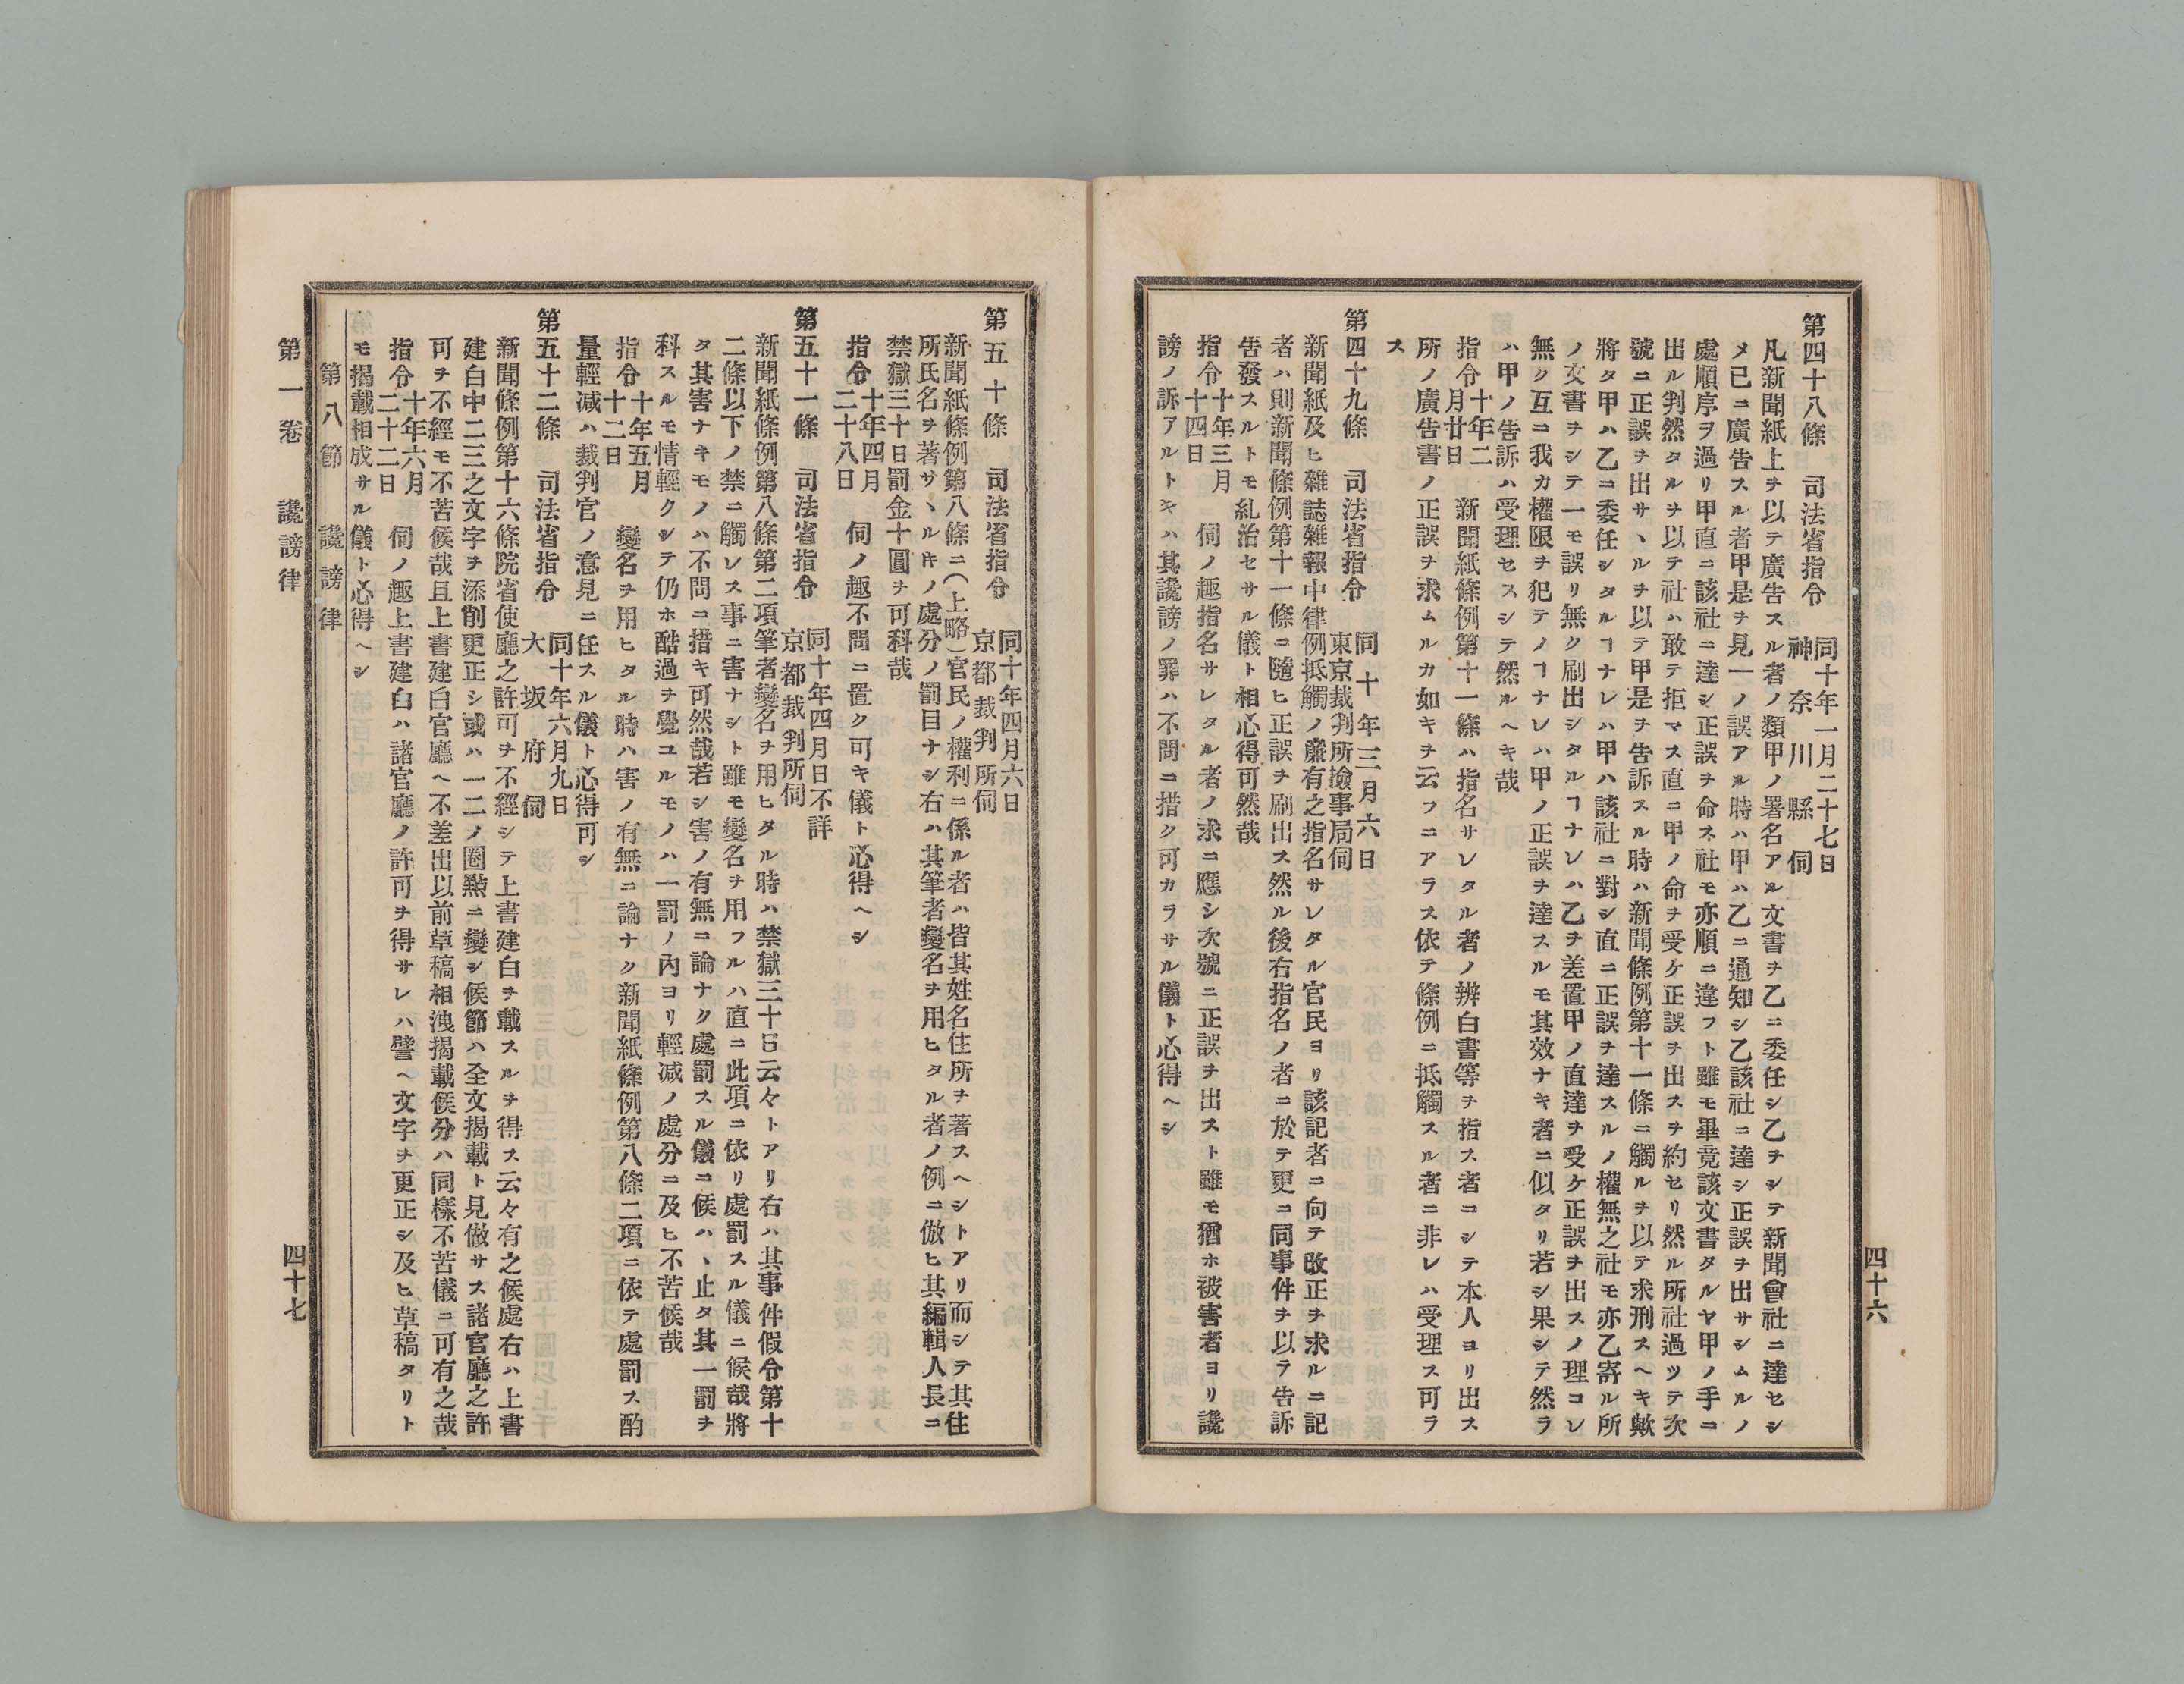 第四十八條　司法省指令　同十年一月二十七日　神奈川縣伺
凡新聞紙上ヲ以テ廣告スル者ノ類甲ノ署名アル文書ヲ乙ニ委任シ乙ヲシテ新聞會社ニ達セシ
メ已ニ廣告スル者甲是ヲ見一ノ誤アル時ハ甲ハ乙ニ通知シ乙該社ニ達シ正誤ヲ出サシムルノ
處順序ヲ過リ甲直ニ該社ニ達シ正誤ヲ命ス社モ亦順ニ違フト雖モ畢竟該文書タルヤ甲ノ手ニ
出ル判然タルヲ以テ社ハ敢テ拒マス直ニ甲ノ命ヲ受ケ正誤ヲ出スヲ約セリ然ル所社過ツテ次
號ニ正誤ヲ出サヽルヲ以テ甲是ヲ告訴スル時ハ新聞條例第十一條ニ觸ルヲ以テ求刑スヘキ歟
將タ甲ハ乙ニ委任シタルヿナレハ甲ハ該社ニ對シ直ニ正誤ヲ達スルノ權無之社モ亦乙寄ル所
ノ文書ヲシテ一モ誤リ無ク刷出シタルヿナレハ乙ヲ差置甲ノ直達ヲ受ケ正誤ヲ出スノ理コレ
無ク互ニ我カ權限ヲ犯テノヿナレハ甲ノ正誤ヲ達スルモ其效ナキ者ニ似タリ若シ果シテ然ラ
ハ甲ノ告訴ハ受理セスシテ然ルヘキ哉
指令十年二月廿日　新聞紙條例第十一條ハ指名サレタル者ノ辨白書等ヲ指ス者ニシテ本人ヨリ出ス
所ノ廣告書ノ正誤ヲ求ムルカ如キヲ云フニアラス依テ條例ニ抵觸スル者ニ非レハ受理ス可ラ
ス
第四十九條　司法省指令　同十年三月六日　東京裁判所撿事局伺
新聞紙及ヒ雜誌雜報中律例抵觸ノ廉有之指名サレタル官民ヨリ該記者ニ向テ改正ヲ求ルニ記
者ハ則新聞條例第十一條ニ隨ヒ正誤ヲ刷出ス然ル後右指名ノ者ニ於テ更ニ同事件ヲ以ラ告訴
告發スルトモ糺治セサル儀ト相心得可然哉
指令十年三月十四日　伺ノ趣指名サレタル者ノ求ニ應シ次號ニ正誤ヲ出スト雖モ猶ホ被害者ヨリ讒
謗ノ訴アルトキハ其讒謗ノ罪ハ不問ニ措ク可カラサル儀ト心得ヘシ
四十六
第五十條　司法省指令　同十年四月六日　京都裁判所伺
新聞紙條例第八條ニ（上略）官民ノ權利ニ係ル者ハ皆其姓名住所ヲ著スヘシトアリ而シテ其住
所氏名ヲ著ザヽル𪜈ノ處分ノ罰目ナシ右ハ其筆者變名ヲ用ヒタル者ノ例ニ倣ヒ其編輯人長ニ
禁獄三十日罰金十圓ヲ可科哉
指令十年四月二十八日　伺ノ趣不問ニ置ク可キ儀ト心得ヘシ
第五十一條　司法省指令　同十年四月日不詳　京都裁判所伺
新聞紙條例第八條第二項筆者變名ヲ用ヒタル時ハ禁獄三十日云々トアリ右ハ其事件假令第十
二條以下ノ禁ニ觸レス事ニ害ナシト雖モ變名ヲ用フルハ直ニ此項ニ依リ處罰スル儀ニ候哉將
タ其害ナキモノハ不問ニ措キ可然哉若シ害ノ有無ニ論ナク處罰スル儀ニ候ハヽ止タ其一罰ヲ
科スルモ情輕クシテ仍ホ酷過ヲ覺ユルモノハ一罰ノ內ヨリ輕減ノ處分ニ及ヒ不苦候哉
指令十年五月十二日　變名ヲ用ヒタル時ハ害ノ有無ニ論ナク新聞紙條例第八條二項ニ依テ處罰ス酌
量輕減ハ裁判官ノ意見ニ任スル儀ト心得可シ
第五十二條　司法省指令　同十年六月九日　大坂府伺
新聞條例第十六條院省使廳之許可ヲ不經シテ上書建白ヲ載スルヲ得ス云々有之候處右ハ上書
建白中二三之文字ヲ添削更正シ或ハ一二ノ圈點ニ變シ候節ハ全文揭載ト見做サス諸官廳之許
可ヲ不經モ不苦候哉且上書建白官廳ヘ不差出以前草稿相洩揭載候分ハ同樣不苦儀ニ可有之哉
指令十年六月二十二日　伺ノ趣上書建白ハ諸官廳ノ許可ヲ得サレハ譬ヘ文字ヲ更正シ及ヒ草稿タリト
モ揭載相成サル儀ト心得ヘシ
第八節　讒謗律
第一卷　讒謗律　四十七